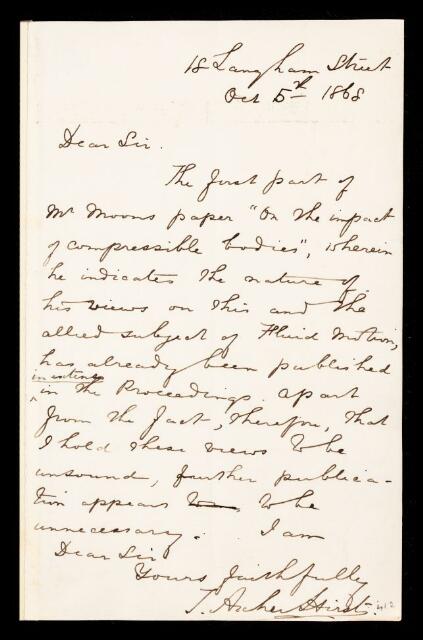 18 Langham Street
Oct 5th 1868
Dear Sir.
The first part of
Mr Moons paper "On the impact
of compressible bodies", wherein
he indicates the nature of
his views on this and the
allied subject of Fluid Motion,
has already been published
in extenso
in the Proceedings. apart
from the fact, therefore, that
I hold these views to be
unsound, further publica-
tion appears to be
unnecessary. I am
Dear Sir
Yours faithfully
T. Archer Hirst.